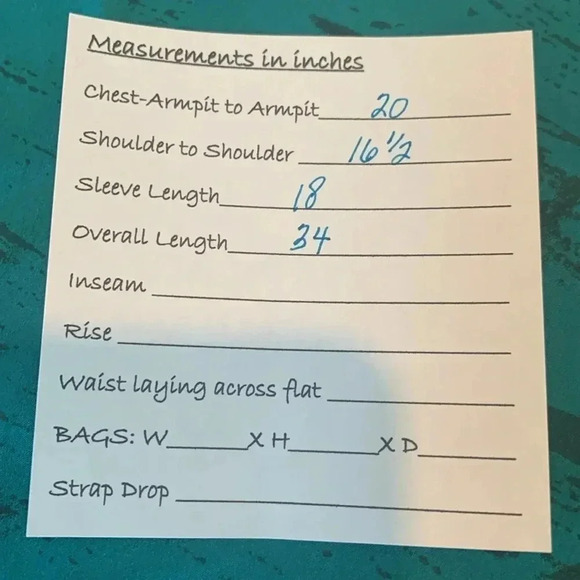 Measurements in inches
Chest-Armpit to Armpit 20
Shoulder to Shoulder 16 1/2
Sleeve Length 18
Overall Length 34
Inseam
Rise
Waist laying across flat
BAGS: W______X H______X D______
Strap Drop